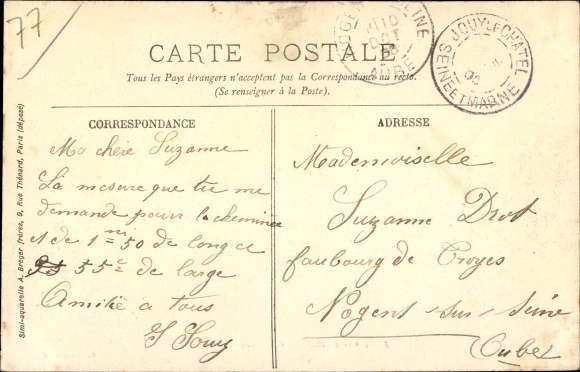 77
CARTE POSTALE
Tous les Pays étrangers n'acceptent pas la Correspondance au recto.
(Se renseigner à la Poste).
JOUY-LE-CHATEL
SEINE ET MARNE
10
OCT
CORRESPONDANCE
Ma chère Suzanne
La mesure que tu me
demande pour la cheminée
et de 1 m 50 de long et
55 c de large
Amitié a tous
ADRESSE
Mademoiselle
Suzanne Drot
faubourg de Troyes
Nogent-sur-Seine
Aube
Simi-aquarelle A. Breger frères, 9, Rue Thénard, Paris (déposé)